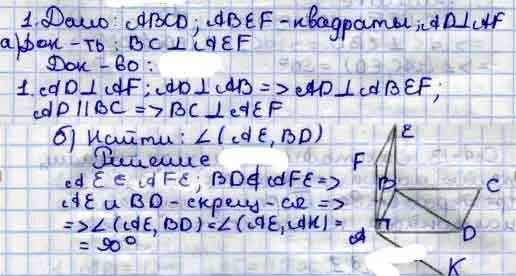 1. Дано: ABCD; ABEF - квадраты; AD⊥AF
а) Док-ть: BC⊥AEF
Док-во:
1. AD⊥AF; AD⊥AB => AD⊥ABEF;
AD∥BC => BC⊥AEF
б) Найти: ∠(AE, BD)
Решение
AE∈AFE; BD∉AFE =>
AE и BD - скрещ-ся =>
=> ∠(AE, BD) = ∠(AE, AK) =
= 90°
E
F
B
C
A
D
K